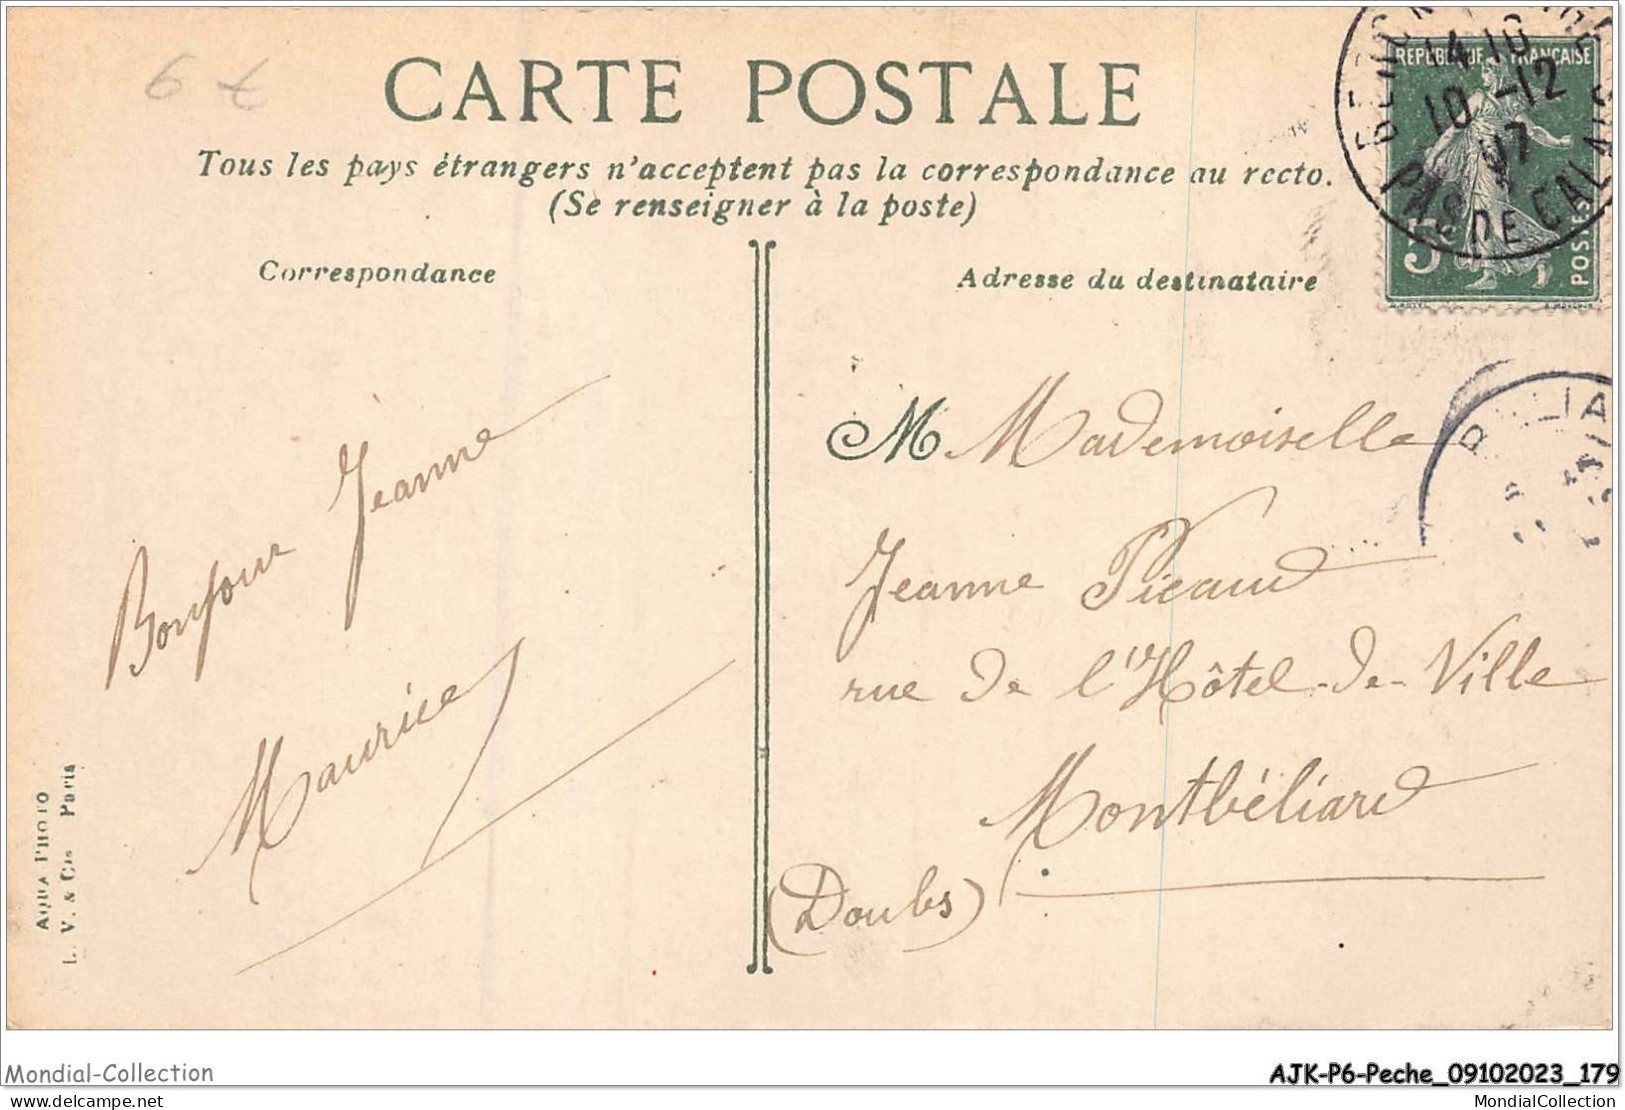 6 €
CARTE POSTALE
Tous les pays étrangers n'acceptent pas la correspondance au recto.
(Se renseigner à la poste)
Correspondance
Adresse du destinataire
REPUBLIQUE FRANÇAISE
POSTES
5
14 10
10 -12
07
PAS DE CALAIS
Bonjour Jeanne
Maurice
M Mademoiselle
Jeanne Picaud
rue de l'Hôtel-de-Ville
Montbéliard
(Doubs)
AQUA PHOTO
L. V. & Cie Paris
Mondial-Collection
AJK-P6-Peche_09102023_179
delcampe.net
MondialCollection